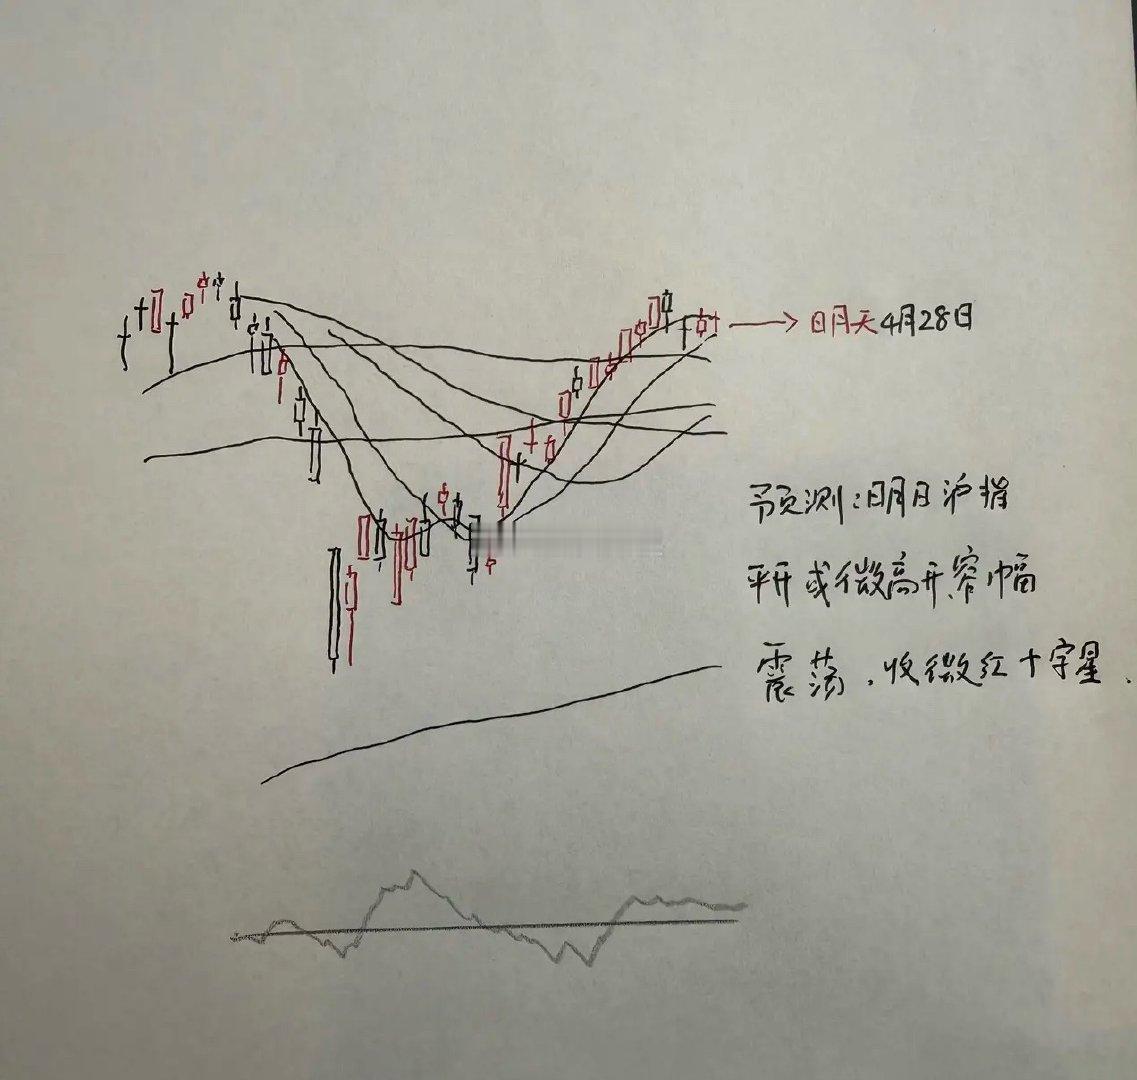 明天4月28日
预测：明日沪指
平开或微高开窄幅
震荡，收微红十字星．